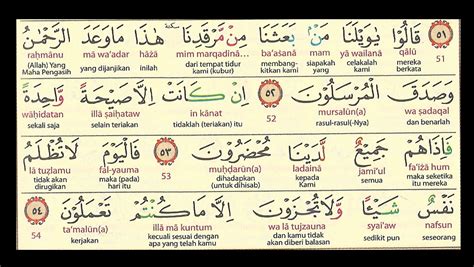 ٥١ قَالُوْا يٰوَيْلَنَا مَنْۢ بَعَثَنَا مِنْ مَّرْقَدِنَا سكتة هٰذَا مَا وَعَدَ الرَّحْمٰنُ
51 qālū yā wailanā mam ba'aṡanā mim marqadinā... hāżā mā wa'adar raḥmānu
mereka berkata celakalah kami siapakah yang membangkitkan kami dari tempat tidur kami (kubur) inilah yang dijanjikan (Allah) Yang Maha Pengasih
وَصَدَقَ الْمُرْسَلُوْنَ ٥٢ اِنْ كَانَتْ اِلَّا صَيْحَةً وَّاحِدَةً
wa ṣadaqal mursalūn(a) 52 in kānat illā ṣaiḥataw wāḥidatan
dan benarlah rasul-rasul(-Nya) tidaklah (teriakan) itu selain teriakan sekali saja
فَاِذَا هُمْ جَمِيْعٌ لَّدَيْنَا مُحْضَرُوْنَ ٥٣ فَالْيَوْمَ لَا تُظْلَمُ
fa'iżā hum jamī'ul ladainā muḥḍarūn(a) 53 fal-yauma lā tuẓlamu
maka seketika itu mereka semua kepada kami dihadapkan (untuk dihisab) maka (pada) hari itu tidak akan dirugikan
نَفْسٌ شَيْـًٔا وَّلَا تُجْزَوْنَ اِلَّا مَا كُنْتُمْ تَعْمَلُوْنَ ٥٤
nafsun syai'aw wa lā tujzauna illā mā kuntum ta'malūn(a) 54
seseorang sedikit pun dan kamu tidak akan diberi balasan kecuali sesuai dengan apa yang telah kamu kerjakan